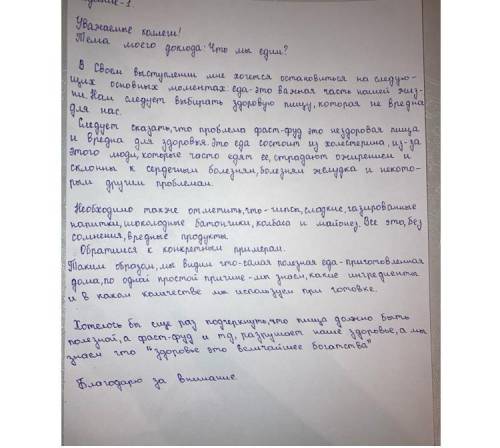 -1
Уважаемые коллеги!
Тема моего доклада: Что мы едим?
В Своем выступлении мне хочется остановиться на следую-
щих основных моментах: еда-это важная часть нашей жиз-
ни. Нам следует выбирать здоровую пищу, которая не вредна
для нас.
Следует сказать, что проблема фаст-фуд это нездоровая пища
и вредна для здоровья. Это еда состоит из холестерина, из-за
этого люди, которые часто едят ее, страдают ожирением и
склонны к сердечным болезням, болезням желудка и некото-
рым другим проблемам.
Необходимо также отметить, что - чипсы, сладкие, газированные
напитки, шоколадные батончики, колбаса и майонез. Все это, без
сомнения, вредные продукты.
Обратимся к конкретным примерам.
Таким образом, мы видим что-самая полезная еда - приготовленная
дома, по одной простой причине - мы знаем, какие ингредиенты
и в каком количестве мы используем при готовке.
Хотелось бы еще раз подчеркнуть, что пища должно быть
полезной, а фаст-фуд и т.д, разрушает наше здоровье, а мы
знаем что "здоровье это величайшее богатства"
Благодарю за внимание